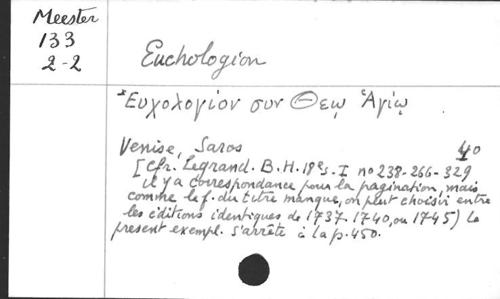 Meester
133
2-2
Euchologion
Εὐχολογίον συν Θεῳ Ἁγίῳ
Venise, Saros 4º
[cfr. Legrand. B.H. 18e s. I nº 238-266-329
il y a correspondance pour la pagination, mais
comme le f. du titre manque, on peut choisir entre
les éditions identiques de 1737-1740, ou 1745) Le
présent exempl. s'arrête à la p. 450.